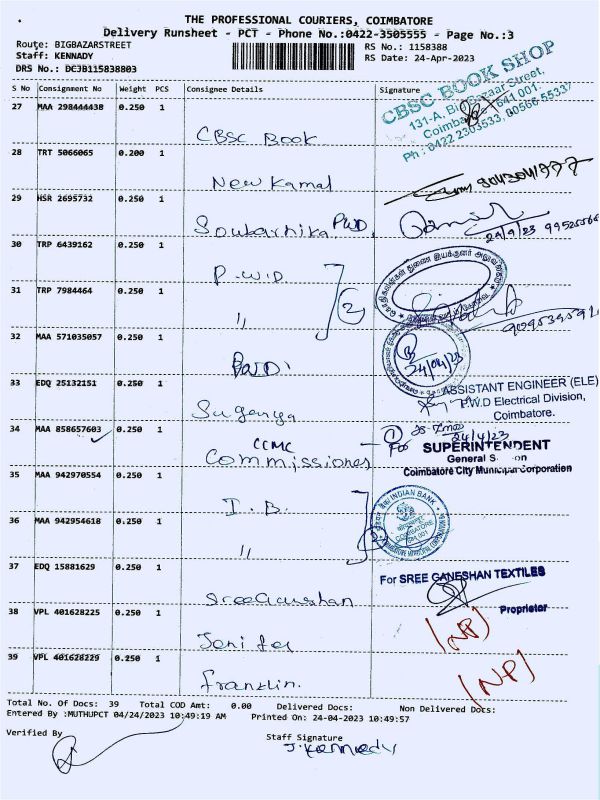 THE PROFESSIONAL COURIERS, COIMBATORE
Delivery Runsheet - PCT - Phone No.:0422-3505555 - Page No.:3
Route: BIGBAZARSTREET
Staff: KENNADY
DRS No.: DCJB115838803
RS No.: 1158388
RS Date: 24-Apr-2023
S No Consignment No Weight PCS Consignee Details Signature
27 MAA 298444438 0.250 1
CBSC Book
CBSC BOOK SHOP
131-A, Big Bazaar Street,
Coimbatore - 641 001.
Ph : 0422 2303533, 00566 55337
28 TRT 5066065 0.200 1
New Kamal
29 HSR 2695732 0.250 1
Soubarnika PWD,
24/4/23
30 TRP 6439162 0.250 1
P.W.D
31 TRP 7984464 0.250 1
"
2
32 MAA 571035057 0.250 1
24/04/23
33 EDQ 25132151 0.250 1
Suganya
ASSISTANT ENGINEER (ELE)
P.W.D Electrical Division,
Coimbatore.
34 MAA 858657603 0.250 1
CCMC
Commissioner
1
24/4/23
For SUPERINTENDENT
General
Coimbatore City Municipal Corporation
35 MAA 942970554 0.250 1
I.B.
36 MAA 942954618 0.250 1
"
INDIAN BANK
COIMBATORE
641 001
37 EDQ 15881629 0.250 1
Sree Ganeshan
For SREE GANESHAN TEXTILES
Proprietor
38 VPL 401628225 0.250 1
Jenifer
(NP)
39 VPL 401628229 0.250 1
Franklin.
(NP)
Total No. Of Docs: 39 Total COD Amt: 0.00 Delivered Docs: Non Delivered Docs:
Entered By :MUTHUPCT 04/24/2023 10:49:19 AM Printed On: 24-04-2023 10:49:57
Verified By
Staff Signature
J. Kennady